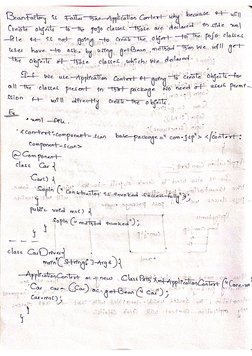 BeanFactory is Faster than Application Context why because it will
Create objects to the pojo classes those are declared in side xml
File it is not going to create the object to the pojo classes
user have to ask by using getBean method then we will get
the objects of those classes which we declared.
If we use Application Context it going to create objects for
all the classes present in that package no need of users permi-
ssion it will directly create the objects
Ex
xml file
<context:component-scan base-package="com-jsp"></context:
component-scan>
@Component
class Car {
Car() {
Sopln("Constructor is invoked successfully");
}
public void mc() {
Sopln("method invoked");
}
}
class CarDriver {
main(String[] args) {
ApplicationContext ac = new ClassPathXmlApplicationContext(
Car car = (Car) ac.getBean("Car");
car.mc();
}
}